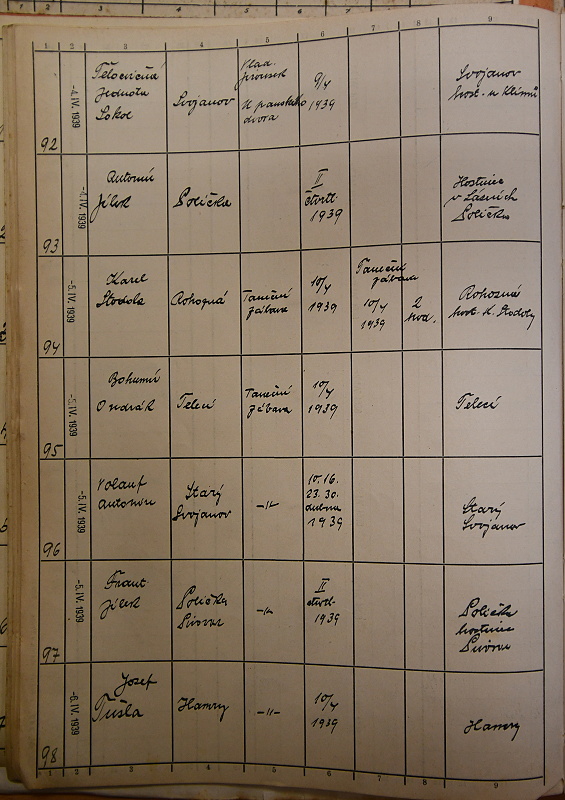 1 2 3 4 5 6 7 8 9
92
-4.IV.1939
Tělocvičná
jednota
Sokol
Svojanov
Vlad.
U panského
dvora
9/4
1939
Svojanov
host. u Klímů
93
-4.IV.1939
Antonín
Jílek
Polička
II
čtvrtl.
1939
Hostinec
Polička
94
-5.IV.1939
Karel
Stodola
Rohozná
Taneční
zábava
10/4
1939
Taneční
zábava
10/4
1939
2
hod.
Rohozná
host. K. Stodoly
95
-5.IV.1939
Bohumír
Ondrák
Telecí
Taneční
zábava
10/4
1939
Telecí
96
-5.IV.1939
Volauf
Antonín
Starý
Svojanov
-"-
10. 16.
23. 30.
dubna
1939
Starý
Svojanov
97
-5.IV.1939
Frant.
Jílek
Polička
Pivovar
-"-
II
čtvrtl.
1939
Polička
hostinec
Pivovar
98
-6.IV.1939
Josef
Tušla
Hamry
-"-
10/4
1939
Hamry
1 2 3 4 5 6 7 8 9